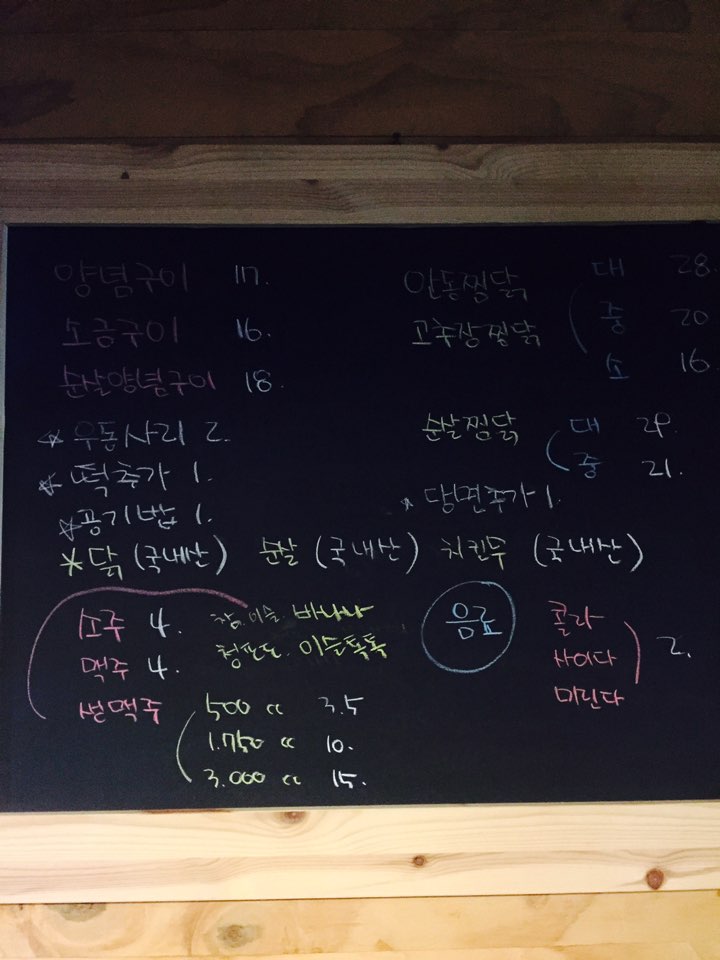 양념구이 17.
소금구이 16.
순살양념구이 18.
☆ 우동사리 2.
☆ 떡추가 1.
☆ 공기밥 1.
안동찜닭
고추장찜닭
대 28
중 20
소 16
순살찜닭
대 29.
중 21.
☆ 당면추가 1.
*닭 (국내산) 순살 (국내산) 치킨무 (국내산)
소주 4.
맥주 4.
생맥주
참.이슬 바나나
청포도. 이슬톡톡
500 cc 3.5
1.750 cc 10.
3.000 cc 15.
음료
콜라
사이다
미린다
2.